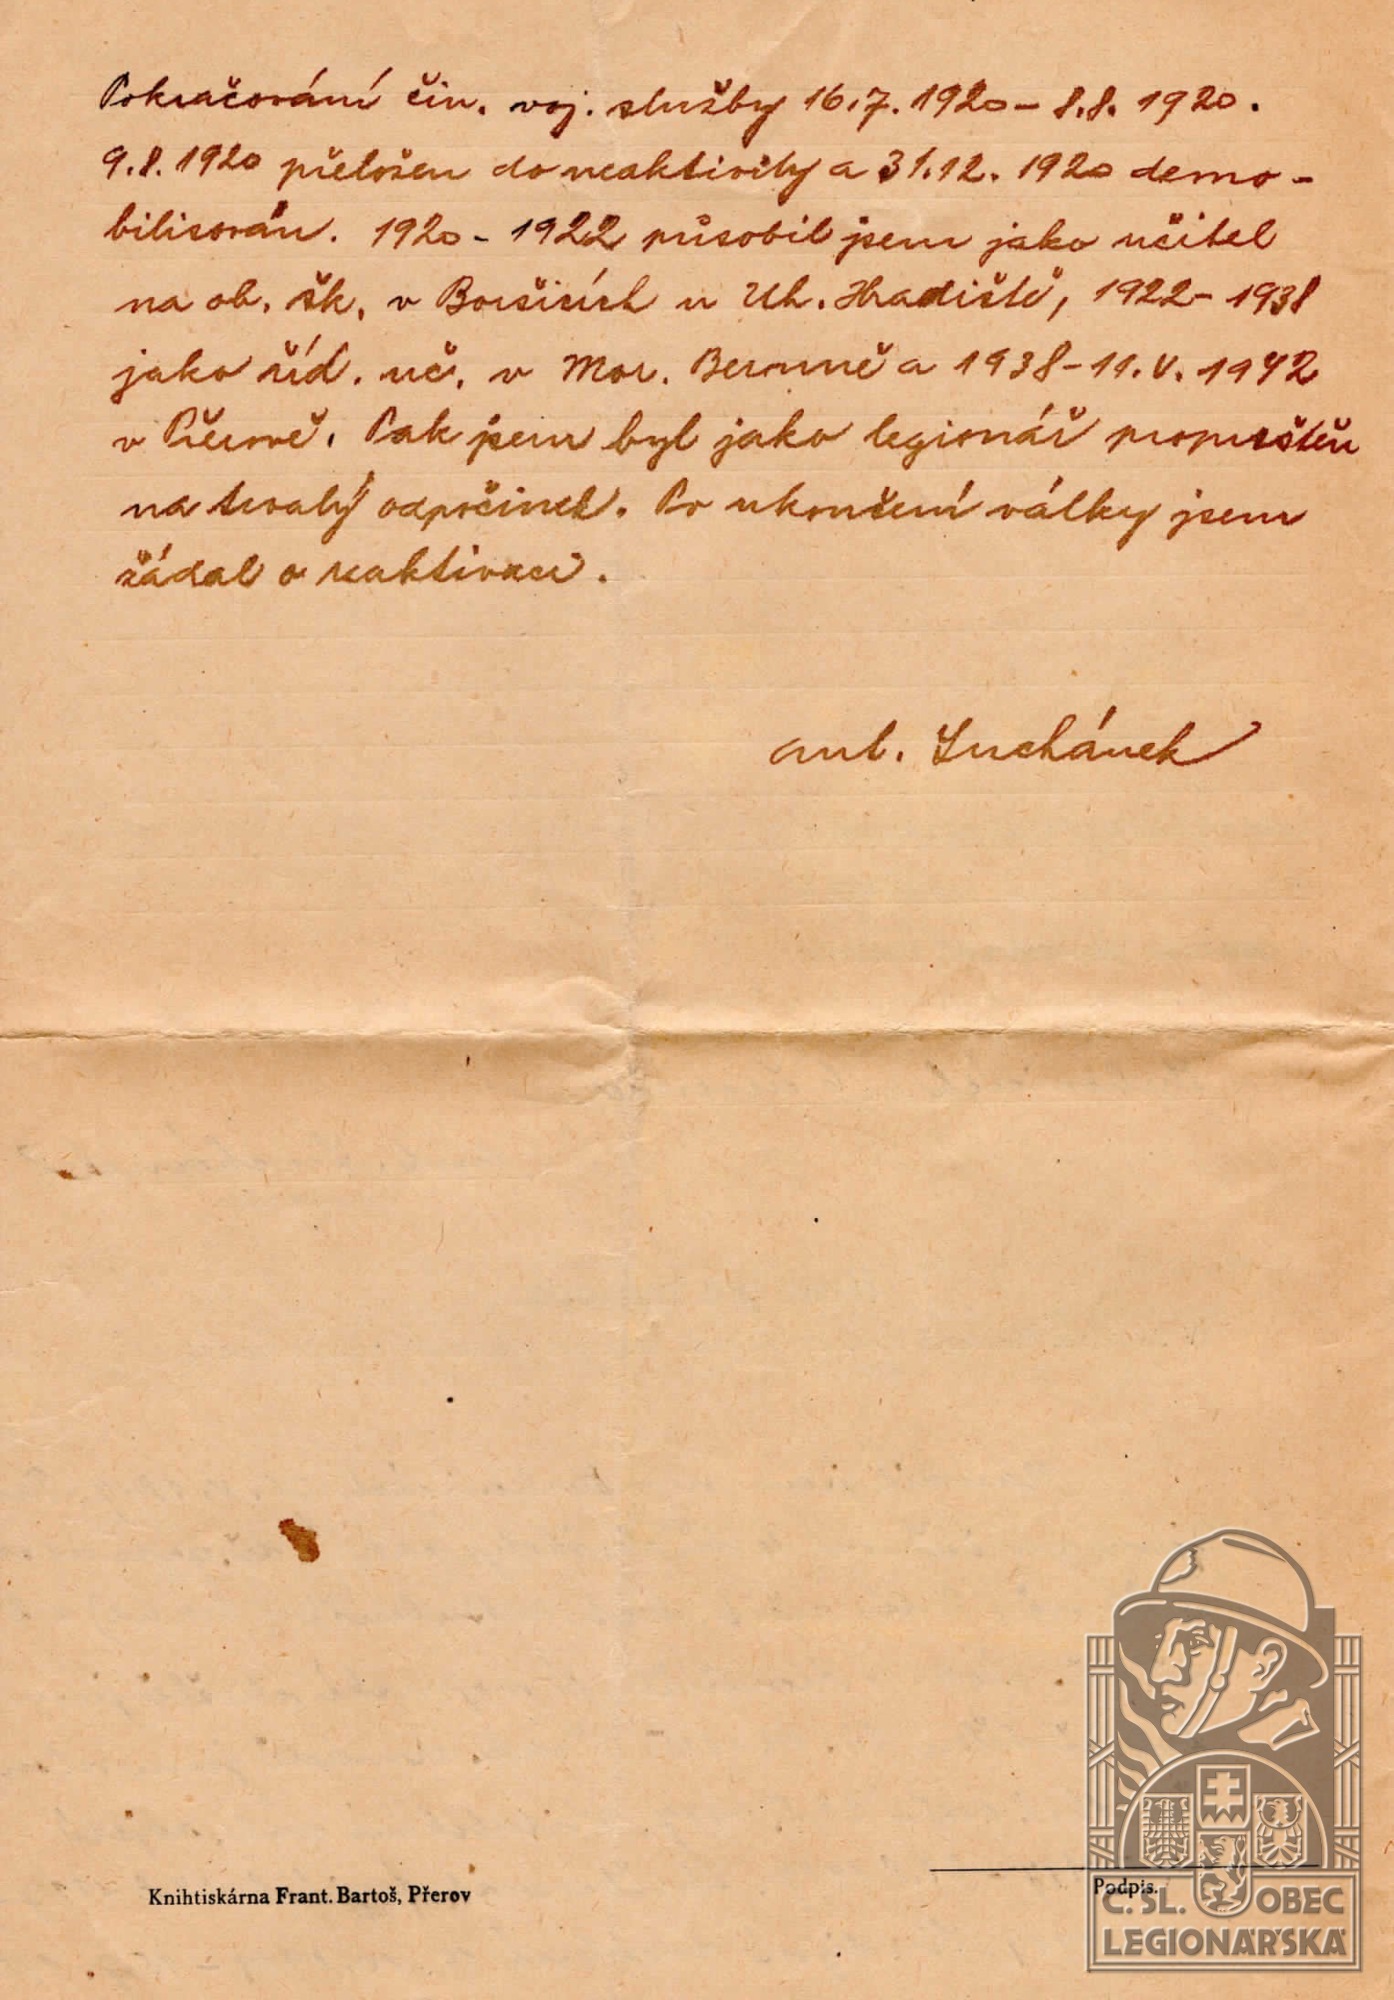 Pokračování čin. voj. služby 16.7.1920 – 8.8. 1920.
9.8.1920 přeložen do neaktivity a 31.12. 1920 demo-
bilisován. 1920 – 1922 působil jsem jako učitel
na ob. šk. v Boršicích u Uh. Hradiště, 1922 – 1938
jako říd. uč. v Mor. Berouně a 1938 – 11.V. 1942
v Přerově. Pak jsem byl jako legionář propuštěn
na trvalý odpočinek. Po ukončení války jsem
žádal o reaktivaci.
Ant. Suchánek
Knihtiskárna Frant. Bartoš, Přerov
Podpis.
Č. SL. OBEC
LEGIONÁŘSKÁ